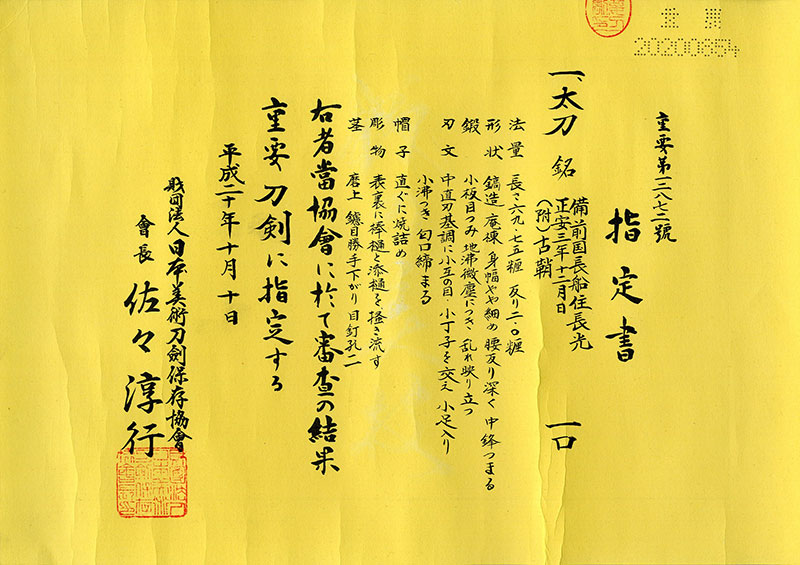 重要
20200654
重要第一三八七二號
指定書
一、太刀 銘 備前国長船住長光 一口
正安三年十二月日
(附)古鞘
法量 長さ六九・七五糎 反り二・〇糎
形状 鎬造 庵棟 身幅やや細め 腰反り深く 中鋒つまる
鍛 小板目つみ 地沸微塵につき 乱れ映り立つ
刃文 中直刃基調に小互の目 小丁子を交え 小足入り
小沸つき 匂口締まる
帽子 直ぐに焼詰め
彫物 表裏に棒樋と添樋を掻き流す
茎 磨上 鑢目勝手下がり 目釘孔二
右者當協會に於て審査の結果
重要刀剣に指定する
平成二十年十月十日
財団法人日本美術刀劍保存協會
會長 佐々淳行